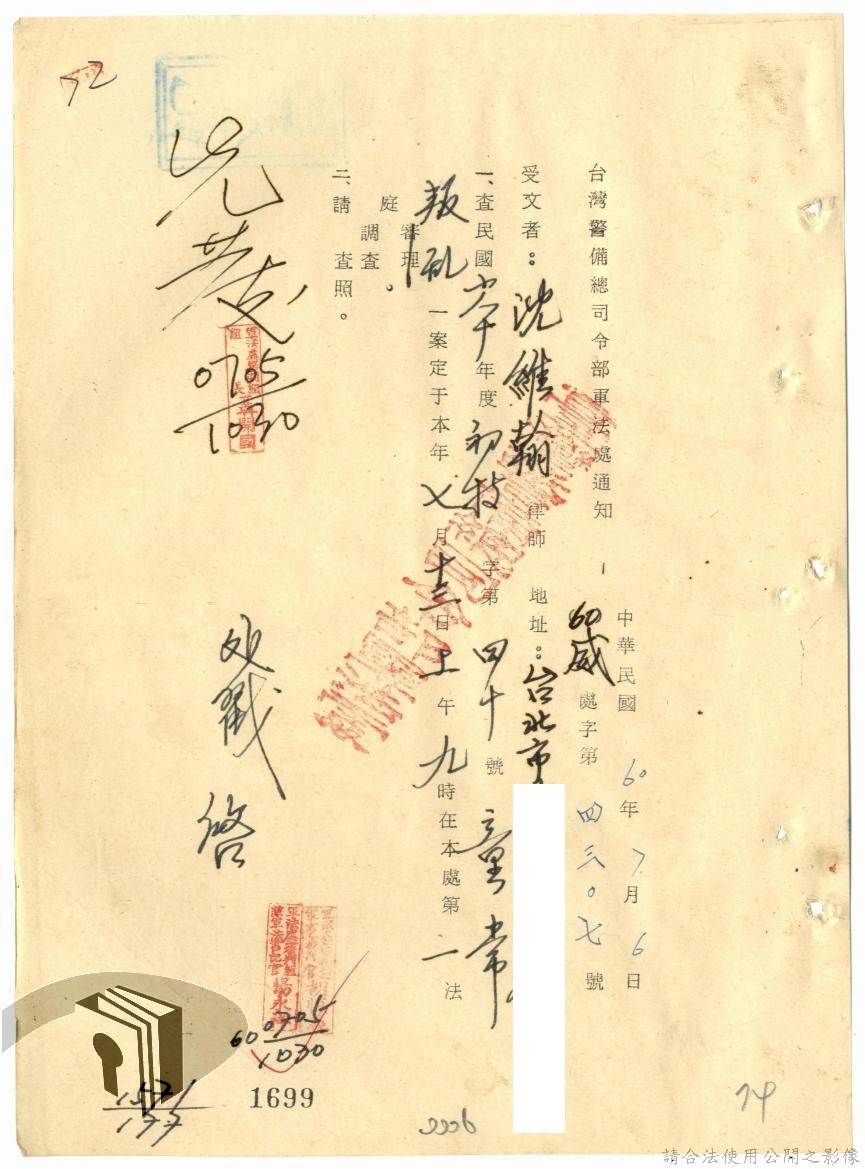 台灣警備總司令部軍法處通知
中華民國60年7月6日
60威處字第四三〇七號
受文者：沈維翰律師 地址：台北市
一、查民國六十年度初特字第四十號童常
叛亂一案定于本年七月十三日上午九時在本處第一法
庭審理
調查。
二、請查照。
先發
0705
1030
處戳 啓
60 0705
1030
1571
177
1699
72
74
請合法使用公開之影像